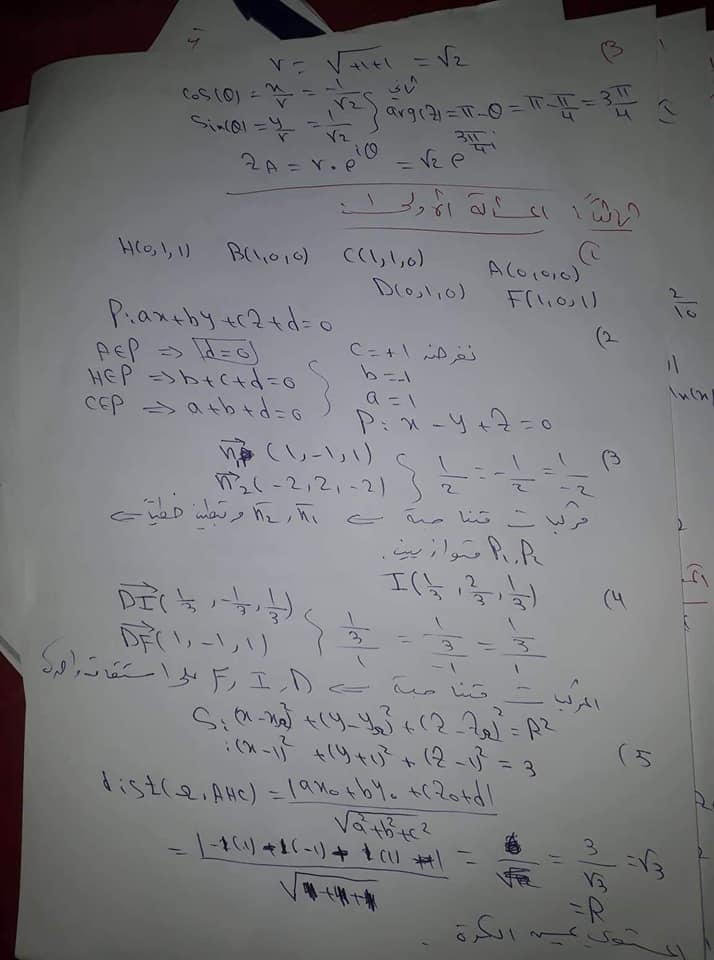 3)
r = √+1+1 = √2
cos(θ) = x/r = -1/√2
sin(θ) = y/r = 1/√2 } ثاني arg(z) = π-θ = π-π/4 = 3π/4
z_A = r·e^iθ = √2 e^3π/4 i
ثالثاً: المسألة الأولى:
1)
H(0,1,1) B(1,0,0) C(1,1,0) A(0,0,0)
D(0,1,0) F(1,0,1)
2)
P: ax+by+cz+d=0
A∈P ⇒ d=0
H∈P ⇒ b+c+d=0
C∈P ⇒ a+b+d=0
نفرض c=+1
b=-1
a=1
P: x-y+z=0
3)
n₁(1,-1,1)
n₂(-2,2,-2) } 1/2 = -1/2 = 1/-2
مركبات متناسبة ⇐ n₁, n₂ مرتبطين خطياً ⇐
P₁, P₂ متوازيين.
4)
I(1/3, 2/3, 1/3)
DI(1/3, -1/3, 1/3)
DF(1,-1,1) } 1/3/1 = 1/3/-1 = 1/3/1
المركبات متناسبة ⇐ F, I, D على استقامة واحدة
5)
S: (x-x_Ω)²+(y-y_Ω)²+(z-z_Ω)² = R²
: (x-1)²+(y+1)²+(z-1)² = 3
dist(Ω, AHC) = |ax₀+by₀+cz₀+d|/√a²+b²+c²
= 3/√3 = √3
= R
المستوي يمس الكرة.